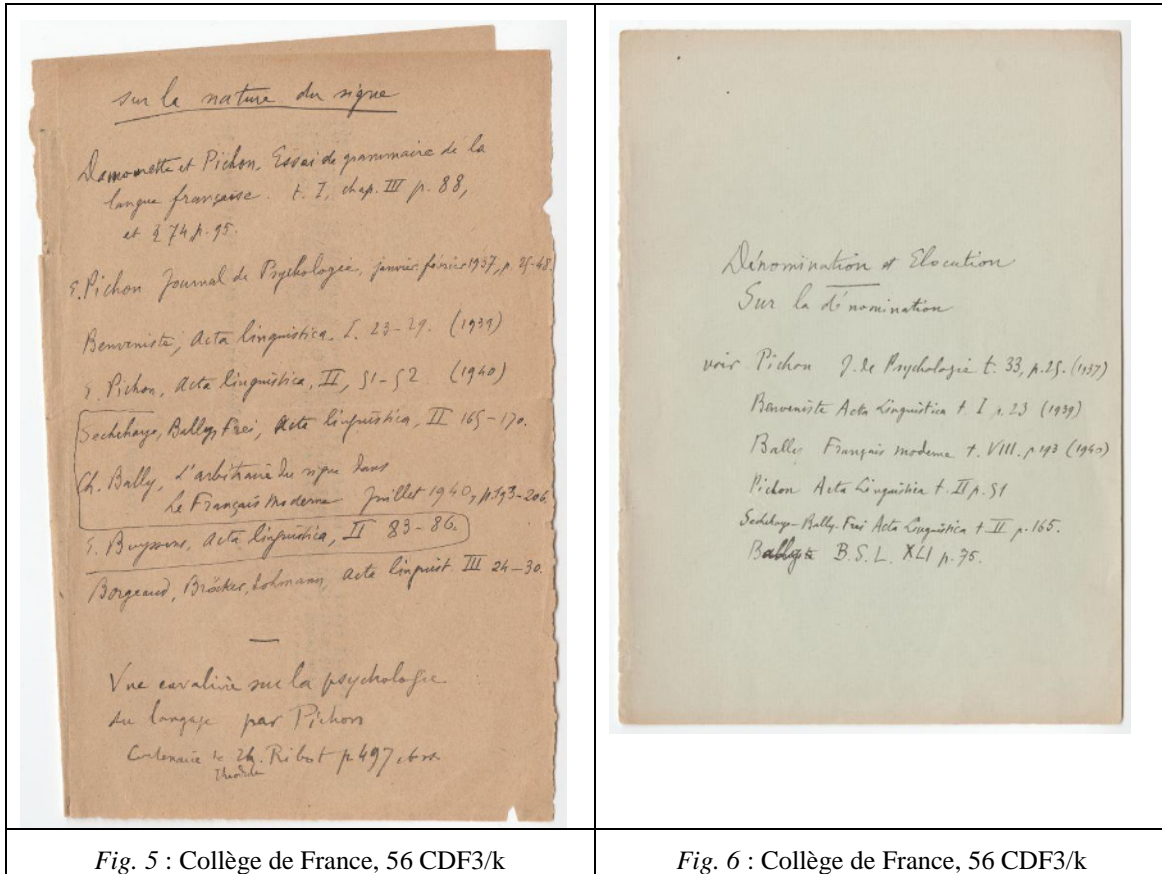 sur la nature du signe
Damourette et Pichon, Essai de grammaire de la
langue française. t. I, chap. III p. 88,
et § 74 p. 95.
E. Pichon Journal de Psychologie, janvier-février 1937, p. 25-48.
Benveniste, Acta linguistica, I. 23-29. (1939)
E. Pichon, Acta linguistica, II, 51-52 (1940)
Sechehaye, Bally, Frei, Acta linguistica, II 165-170.
Ch. Bally, L'arbitraire du signe dans
Le Français Moderne Juillet 1940, p. 193-206.
E. Buyssens, Acta linguistica, II 83-86.
Borgeaud, Bröcker, Lohmann, Acta linguist. III 24-30.
—
Vue cavalière sur la psychologie
du langage par Pichon
Centenaire de Th. Ribot p. 497
Théodule
Fig. 5 : Collège de France, 56 CDF3/k
Dénomination et Elocution
Sur la dénomination
voir Pichon J. de Psychologie t. 33, p. 25. (1937)
Benveniste Acta Linguistica t. I p. 23 (1939)
Bally Français moderne t. VIII. p 193 (1940)
Pichon Acta Linguistica t. II p. 51
Sechehaye-Bally-Frei Acta Linguistica t. II p. 165.
B.S.L. XLI p. 75.
Fig. 6 : Collège de France, 56 CDF3/k